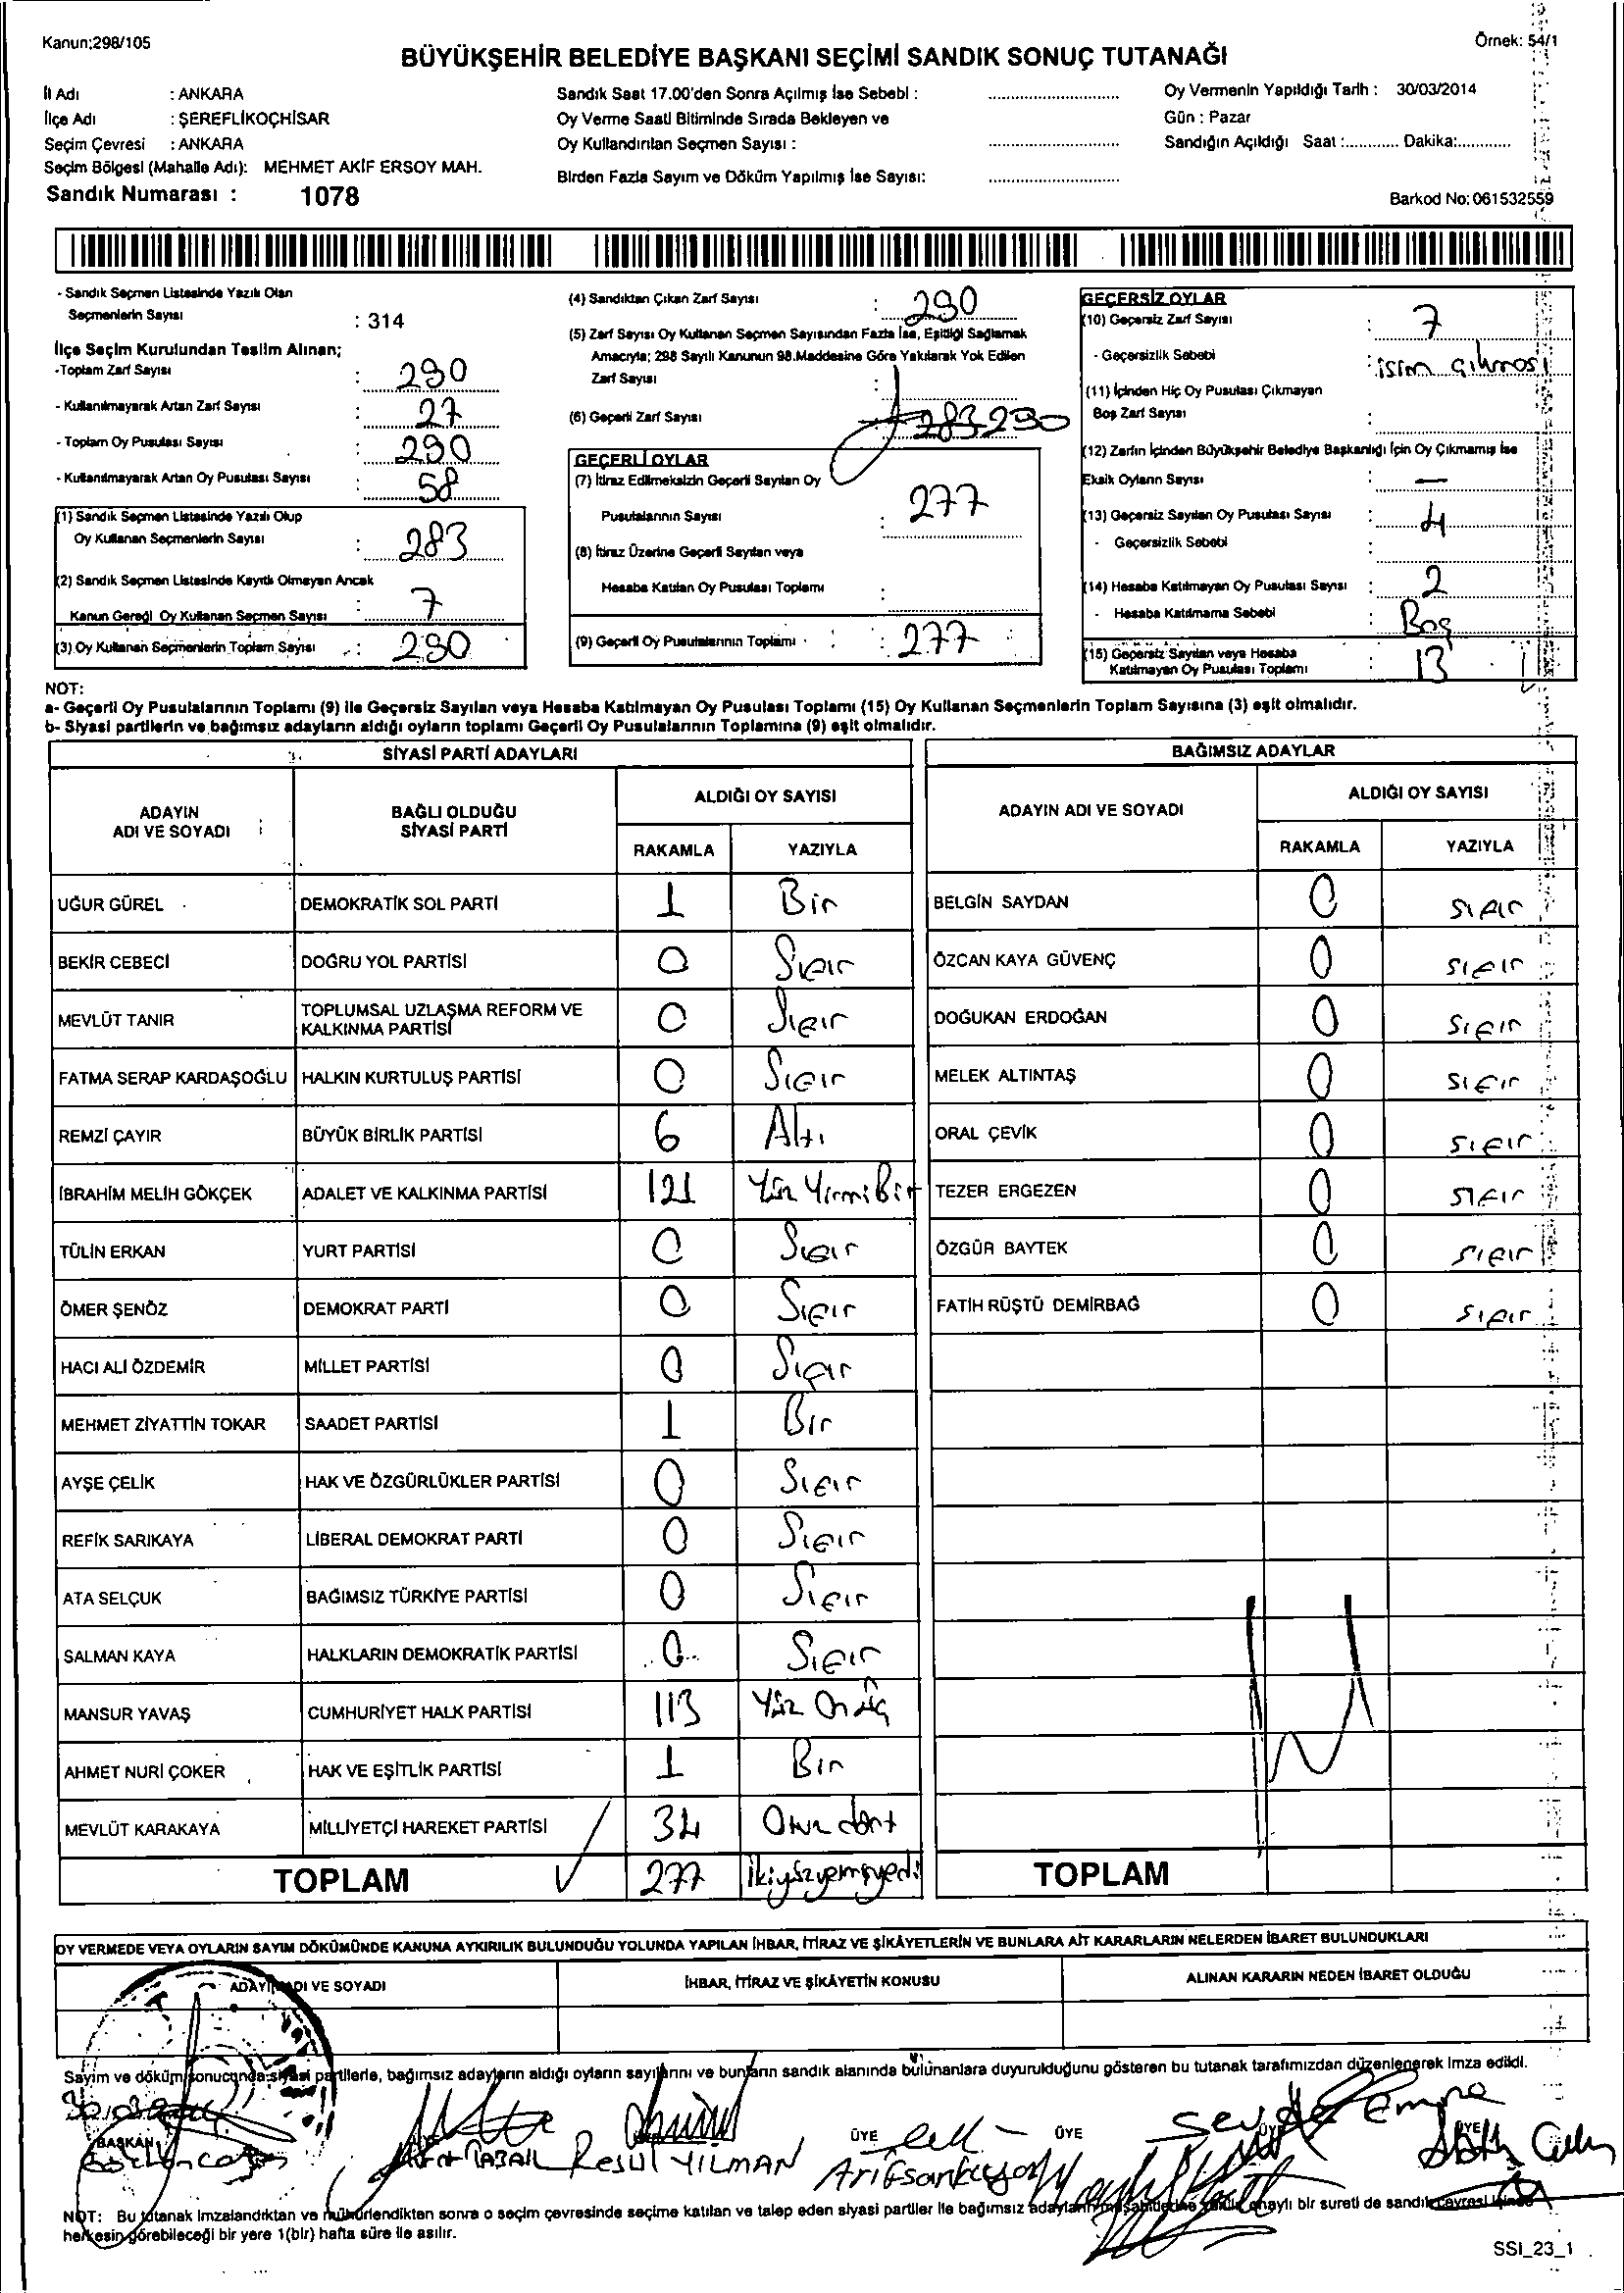 Kanun;298/105
Örnek: 54/1
BÜYÜKŞEHİR BELEDİYE BAŞKANI SEÇİMİ SANDIK SONUÇ TUTANAĞI
İl Adı : ANKARA
İlçe Adı : ŞEREFLİKOÇHİSAR
Seçim Çevresi : ANKARA
Seçim Bölgesi (Mahalle Adı): MEHMET AKİF ERSOY MAH.
Sandık Numarası : 1078
Sandık Saat 17.00'den Sonra Açılmış İse Sebebi :
Oy Verme Saati Bitiminde Sırada Bekleyen ve
Oy Kullandırılan Seçmen Sayısı :
Birden Fazla Sayım ve Döküm Yapılmış İse Sayısı:
Oy Vermenin Yapıldığı Tarih : 30/03/2014
Gün : Pazar
Sandığın Açıldığı Saat :............ Dakika:............
Barkod No: 061532559
- Sandık Seçmen Listesinde Yazılı Olan
Seçmenlerin Sayısı : 314
İlçe Seçim Kurulundan Teslim Alınan;
-Toplam Zarf Sayısı : 290
- Kullanılmayarak Artan Zarf Sayısı : 27
- Toplam Oy Pusulası Sayısı : 290
- Kullanılmayarak Artan Oy Pusulası Sayısı : 58
(1) Sandık Seçmen Listesinde Yazılı Olup
Oy Kullanan Seçmenlerin Sayısı : 283
(2) Sandık Seçmen Listesinde Kayıtlı Olmayan Ancak
Kanun Gereği Oy Kullanan Seçmen Sayısı : 7
(3) Oy Kullanan Seçmenlerin Toplam Sayısı : 290
(4) Sandıktan Çıkan Zarf Sayısı : 290
(5) Zarf Sayısı Oy Kullanan Seçmen Sayısından Fazla İse, Eşitliği Sağlamak
Amacıyla; 298 Sayılı Kanunun 98.Maddesine Göre Yakılarak Yok Edilen
Zarf Sayısı :
(6) Geçerli Zarf Sayısı : 283 290
GEÇERLİ OYLAR
(7) İtiraz Edilmeksizin Geçerli Sayılan Oy
Pusulalarının Sayısı : 277
(8) İtiraz Üzerine Geçerli Sayılan veya
Hesaba Katılan Oy Pusulası Toplamı :
(9) Geçerli Oy Pusulalarının Toplamı : 277
GEÇERSİZ OYLAR
(10) Geçersiz Zarf Sayısı : 7
- Geçersizlik Sebebi : isim çıkması
(11) İçinden Hiç Oy Pusulası Çıkmayan
Boş Zarf Sayısı :
(12) Zarfın İçinden Büyükşehir Belediye Başkanlığı İçin Oy Çıkmamış İse
Eksik Oyların Sayısı : —
(13) Geçersiz Sayılan Oy Pusulası Sayısı : 4
- Geçersizlik Sebebi :
(14) Hesaba Katılmayan Oy Pusulası Sayısı : 2
- Hesaba Katılmama Sebebi : Boş
(15) Geçersiz Sayılan veya Hesaba
Katılmayan Oy Pusulası Toplamı : 13
NOT:
a- Geçerli Oy Pusulalarının Toplamı (9) ile Geçersiz Sayılan veya Hesaba Katılmayan Oy Pusulası Toplamı (15) Oy Kullanan Seçmenlerin Toplam Sayısına (3) eşit olmalıdır.
b- Siyasi partilerin ve bağımsız adayların aldığı oyların toplamı Geçerli Oy Pusulalarının Toplamına (9) eşit olmalıdır.
SİYASİ PARTİ ADAYLARI
ADAYIN ADI VE SOYADI BAĞLI OLDUĞU SİYASİ PARTİ ALDIĞI OY SAYISI
RAKAMLA YAZIYLA
UĞUR GÜREL DEMOKRATİK SOL PARTİ 1 Bir
BEKİR CEBECİ DOĞRU YOL PARTİSİ 0 Sıfır
MEVLÜT TANIR TOPLUMSAL UZLAŞMA REFORM VE KALKINMA PARTİSİ 0 Sıfır
FATMA SERAP KARDAŞOĞLU HALKIN KURTULUŞ PARTİSİ 0 Sıfır
REMZİ ÇAYIR BÜYÜK BİRLİK PARTİSİ 6 Altı
İBRAHİM MELİH GÖKÇEK ADALET VE KALKINMA PARTİSİ 121 Yüz Yirmi Bir
TÜLİN ERKAN YURT PARTİSİ 0 Sıfır
ÖMER ŞENÖZ DEMOKRAT PARTİ 0 Sıfır
HACI ALİ ÖZDEMİR MİLLET PARTİSİ 0 Sıfır
MEHMET ZİYATTİN TOKAR SAADET PARTİSİ 1 Bir
AYŞE ÇELİK HAK VE ÖZGÜRLÜKLER PARTİSİ 0 Sıfır
REFİK SARIKAYA LİBERAL DEMOKRAT PARTİ 0 Sıfır
ATA SELÇUK BAĞIMSIZ TÜRKİYE PARTİSİ 0 Sıfır
SALMAN KAYA HALKLARIN DEMOKRATİK PARTİSİ 0 Sıfır
MANSUR YAVAŞ CUMHURİYET HALK PARTİSİ 113 Yüz Onüç
AHMET NURİ ÇOKER HAK VE EŞİTLİK PARTİSİ 1 Bir
MEVLÜT KARAKAYA MİLLİYETÇİ HAREKET PARTİSİ 34 Otuz dört
TOPLAM 277 ikiyüzyemişyedi
BAĞIMSIZ ADAYLAR
ADAYIN ADI VE SOYADI ALDIĞI OY SAYISI
RAKAMLA YAZIYLA
BELGİN SAYDAN 0 sıfır
ÖZCAN KAYA GÜVENÇ 0 sıfır
DOĞUKAN ERDOĞAN 0 sıfır
MELEK ALTINTAŞ 0 sıfır
ORAL ÇEVİK 0 sıfır
TEZER ERGEZEN 0 sıfır
ÖZGÜR BAYTEK 0 sıfır
FATİH RÜŞTÜ DEMİRBAĞ 0 sıfır
TOPLAM
OY VERMEDE VEYA OYLARIN SAYIM DÖKÜMÜNDE KANUNA AYKIRILIK BULUNDUĞU YOLUNDA YAPILAN İHBAR, İTİRAZ VE ŞİKÂYETLERİN VE BUNLARA AİT KARARLARIN NELERDEN İBARET BULUNDUKLARI
ADAYIN ADI VE SOYADI İHBAR, İTİRAZ VE ŞİKÂYETİN KONUSU ALINAN KARARIN NEDEN İBARET OLDUĞU
Sayım ve döküm sonucunda siyasi partilerle, bağımsız adayların aldığı oyların sayılarını ve bunların sandık alanında bulunanlara duyurulduğunu gösteren bu tutanak tarafımızdan düzenlenerek imza edildi.
BAŞKAN ÜYE ÜYE ÜYE ÜYE
Resul YILMAN
NOT: Bu tutanak imzalandıktan ve mühürlendikten sonra o seçim çevresinde seçime katılan ve talep eden siyasi partiler ile bağımsız adayların müşahitlerine onaylı bir sureti de sandık çevresi içinde
herkesin görebileceği bir yere 1(bir) hafta süre ile asılır.
SSI_23_1